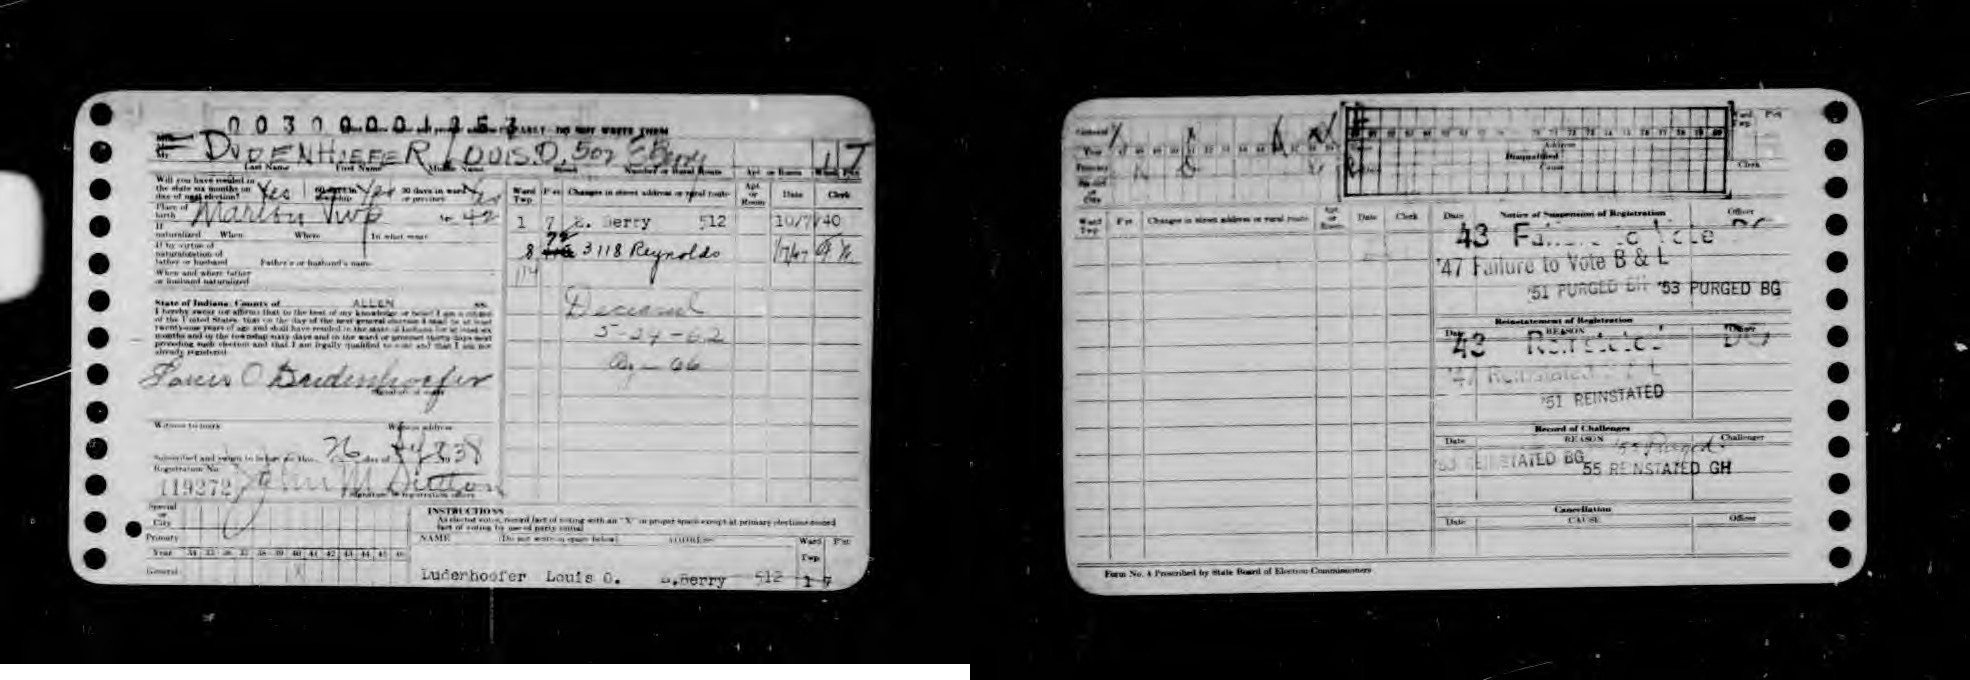 00300001253
RARILY - DO NOT WRITE THEM
DUDENHIEFER, LOUIS O. 502 E Berry 1 7
Last Name First Name Middle Name Street Number or Rural Route Apt. or Room Ward Pct
Will you have resided in
the state six months on Yes 60 days in Yes 30 days in ward Yes
day of next election? township or precinct
Place of
birth Marion Twp 42
If
naturalized When Where In what court
If by virtue of
naturalization of
father or husband Father's or husband's name
When and where father
or husband naturalized
State of Indiana, County of ALLEN ss.
I hereby swear (or affirm) that to the best of my knowledge or belief I am a citizen
of the United States, that on the day of the next general election I shall be at least
twenty-one years of age and shall have resided in the state of Indiana for at least six
months and in the township sixty days and in the ward or precinct thirty days next
preceding such election and that I am legally qualified to vote and that I am not
already registered
Louis O Dudenhoefer
Witness to mark Witness address
Subscribed and sworn to before me this 26 day of 38
Registration No.
119272 John M Sitton
Signature of registration officer
Ward Twp. Pct Changes in street address or rural route Apt. or Room Date Clerk
1 7 E. Berry 512 10/7/40
8 3118 Reynolds 1/7/47
114
Deceased
5-24-62
Age 66
Special
or
City
Primary
Year 34 35 36 37 38 39 40 41 42 43 44 45 46
General X
INSTRUCTIONS
As elector votes, record fact of voting with an "X" in proper space except at primary elections record
fact of voting by use of party initial
NAME (Do not write in space below) ADDRESS Ward Twp. Pct
Luderhoefer Louis O. E.Berry 512 1 7
General
Year
Primary
Special
or
City
Address
Disqualified
Cause
Ward Twp. Pct
Clerk
Ward Twp. Pct Changes in street address or rural route Apt. or Room Date Clerk
Date Notice of Suspension of Registration Officer
43 Failure to Vote
'47 Failure to Vote B & L
'51 PURGED BH '53 PURGED BG
Reinstatement of Registration
Date REASON Officer
43 Reinstated
'47 Reinstated
'51 REINSTATED
Record of Challenges
Date REASON Challenger
'55 Purged
'53 REINSTATED BG 55 REINSTATED GH
Cancellation
Date CAUSE Officer
Form No. 4 Prescribed by State Board of Election Commissioners